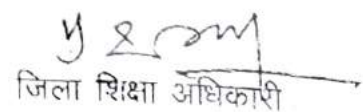 जिला शिक्षा अधिकारी